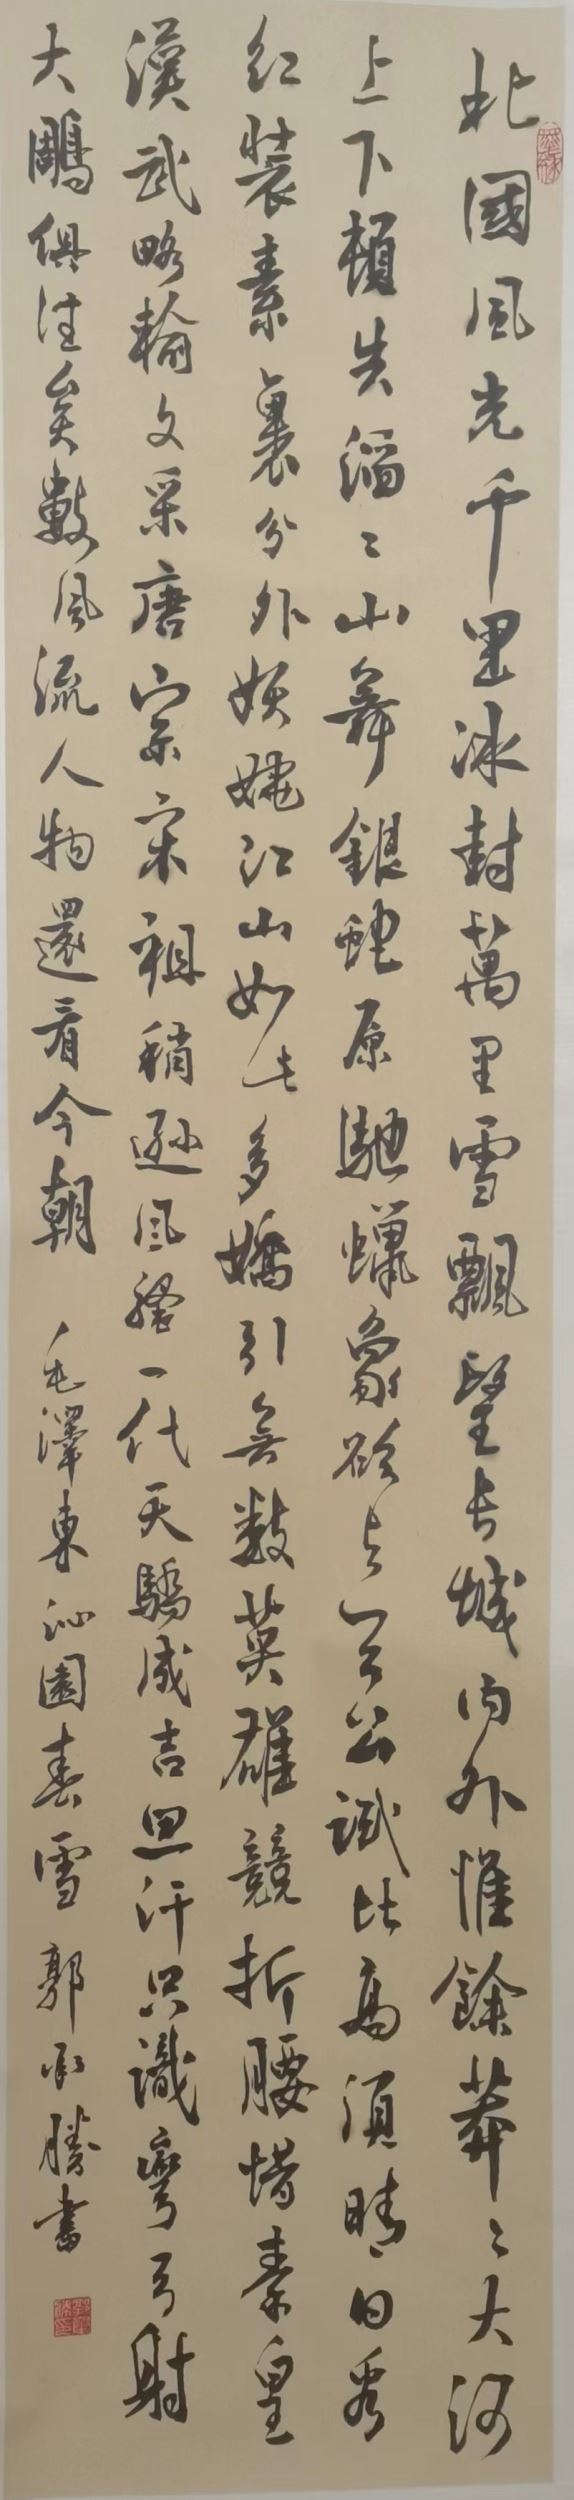 北國風光千里冰封萬里雪飄望長城內外惟餘莽〻大河
上下頓失滔〻山舞銀蛇原馳蠟象欲與天公試比高須晴日看
紅裝素裹分外妖嬈江山如此多嬌引無數英雄競折腰惜秦皇
漢武略輸文采唐宗宋祖稍遜風騷一代天驕成吉思汗只識彎弓射
大鵰俱往矣數風流人物還看今朝 毛澤東沁園春雪 郭承勝書